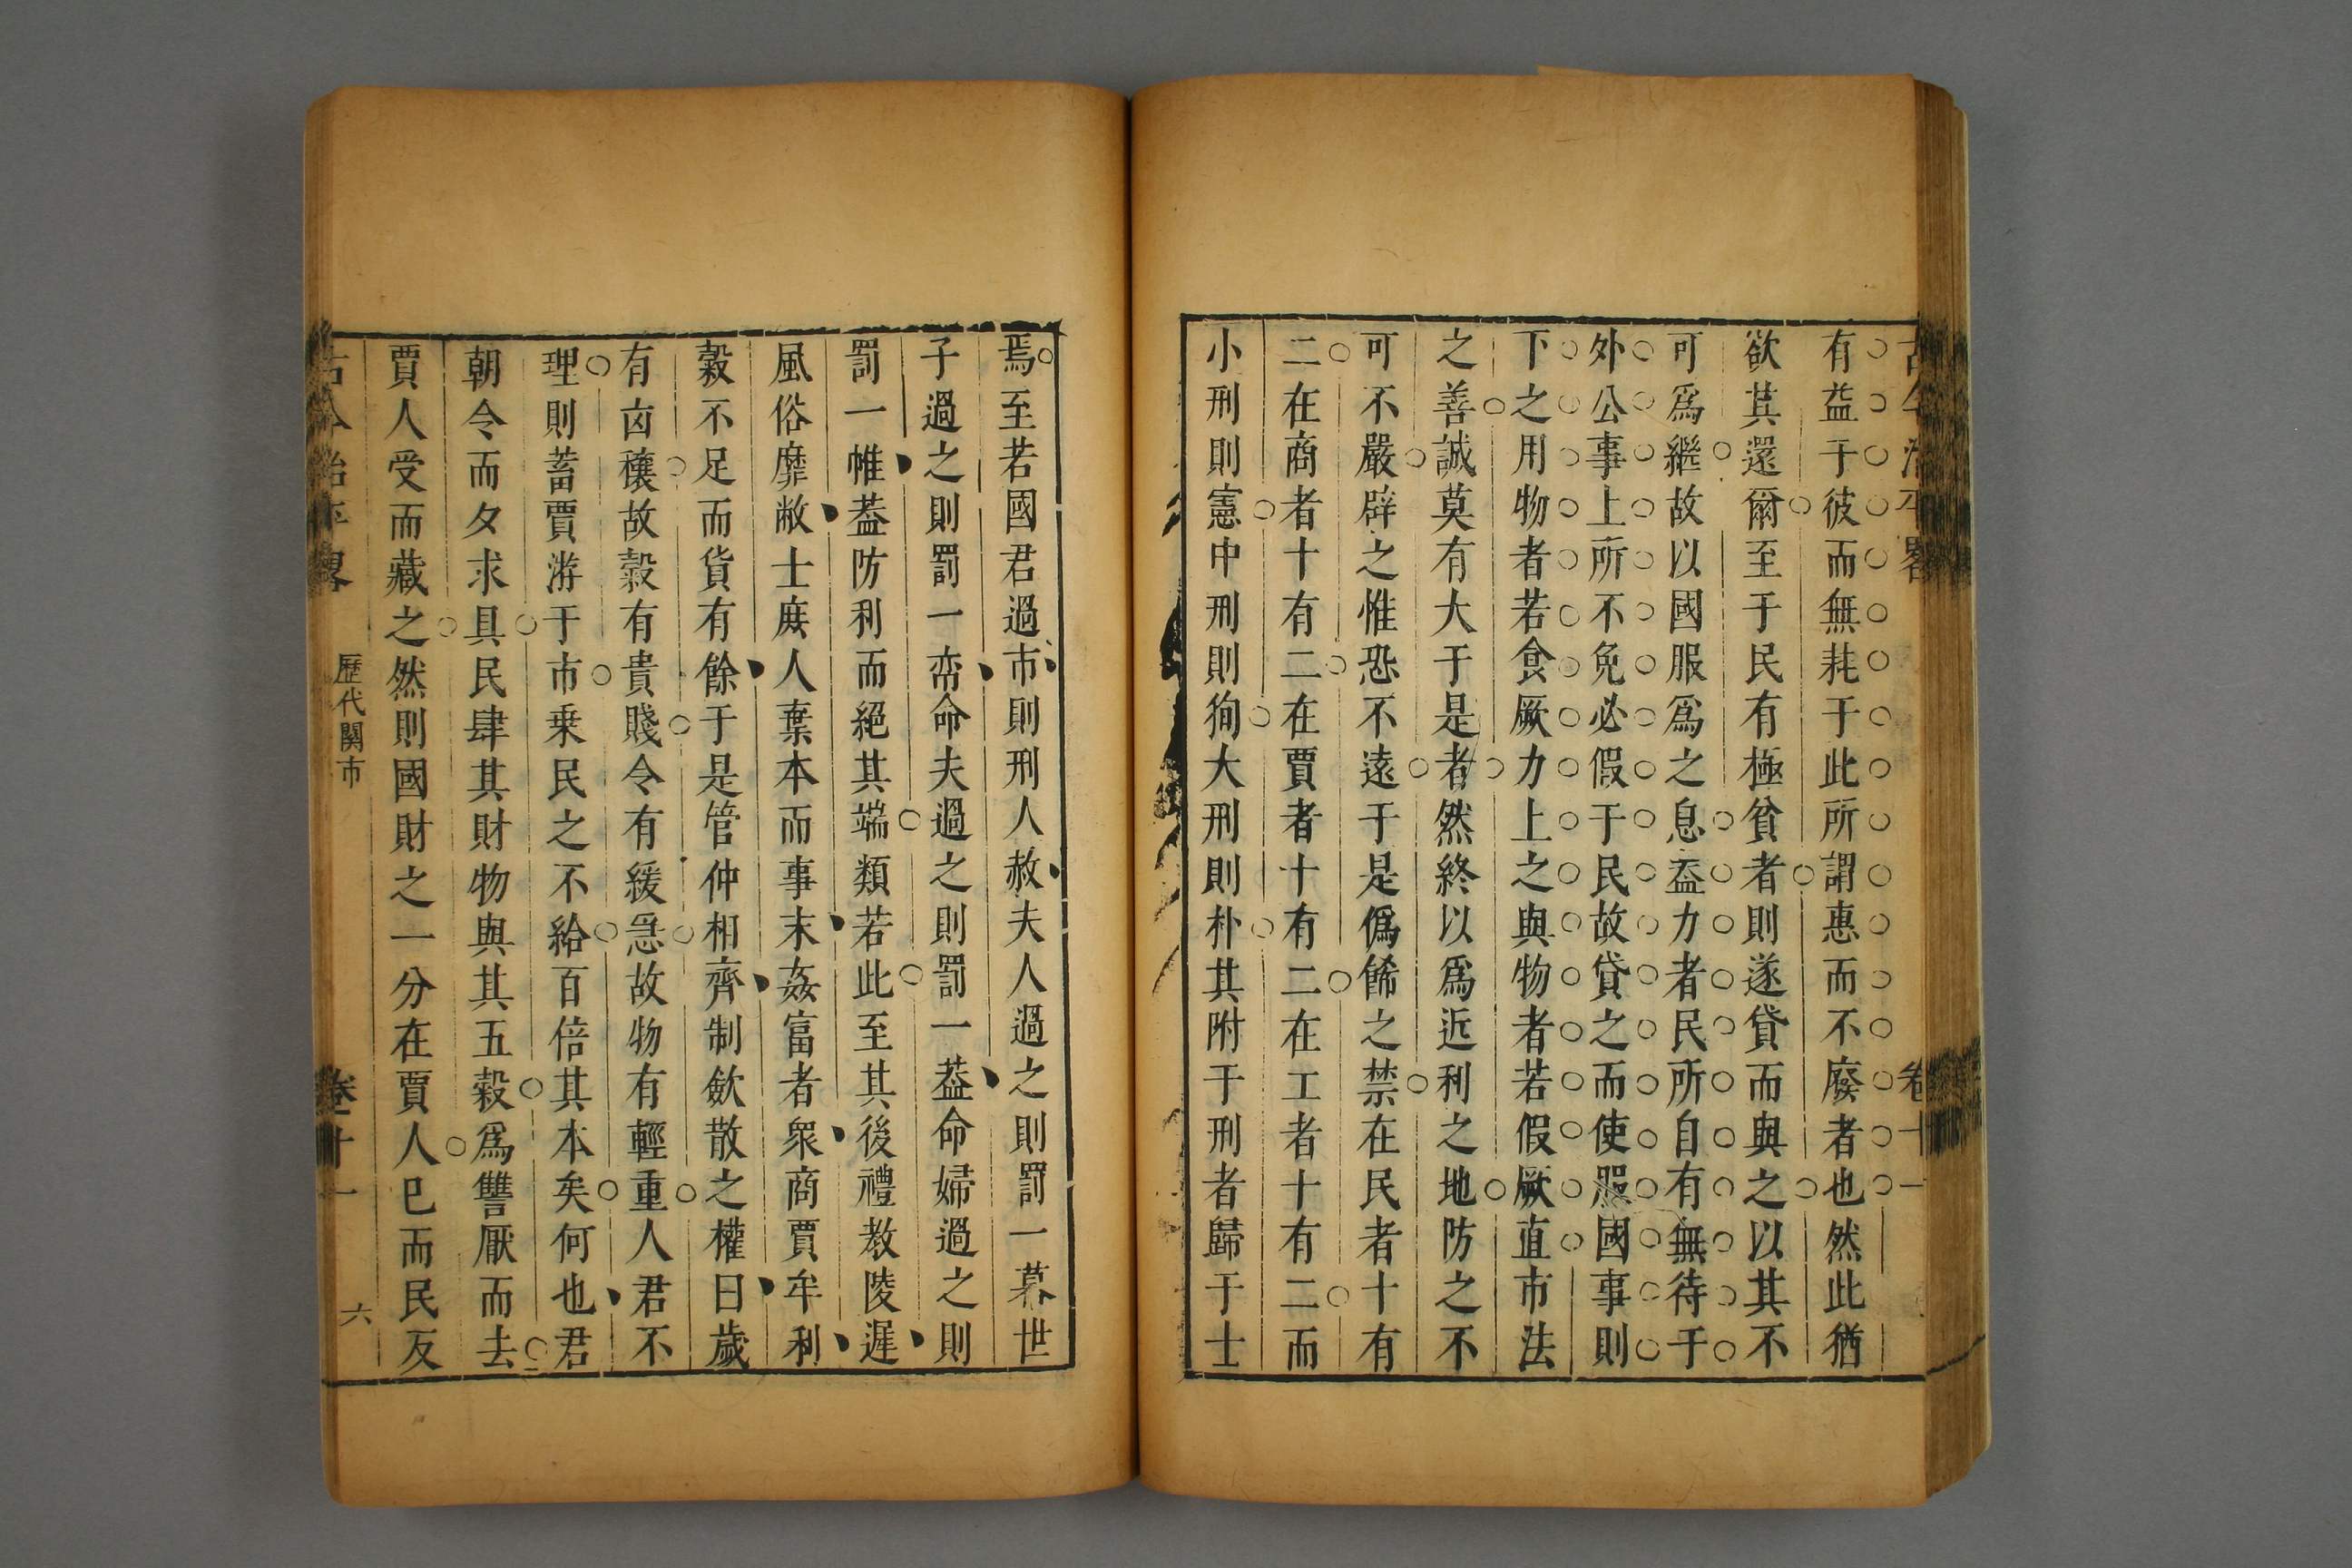 有益于彼而無耗于此所謂惠而不廢者也然此猶
欲其還爾至于民有極貧者則遂貸而與之以其不
可爲繼故以國服爲之息益力者民所自有無待于
外公事上所不免必假于民故貸之而使服國事則
下之用物者若食厥力上之與物者若假厥直市法
之善誠莫有大于是者然終以爲近利之地防之不
可不嚴辟之惟恐不遠于是僞餙之禁在民者十有
二在商者十有二在賈者十有二在工者十有二而
小刑則憲中刑則狥大刑則朴其附于刑者歸于士
焉至若國君過市則刑人赦夫人過之則罰一幕世
子過之則罰一帟命夫過之則罰一葢命婦過之則
罰一帷葢防利而絕其端類若此至其後禮教陵遲
風俗靡敝士庻人棄本而事末姦富者衆商賈牟利
穀不足而貨有餘于是管仲相齊制歛散之權曰歲
有㐫穰故穀有貴賤令有緩急故物有輕重人君不
理則蓄賈游于市乗民之不給百倍其本矣何也君
朝令而夕求具民肆其財物與其五穀爲讐厭而去
賈人受而藏之然則國財之一分在賈人巳而民反
古今治平畧
歷代関市
卷十一
六